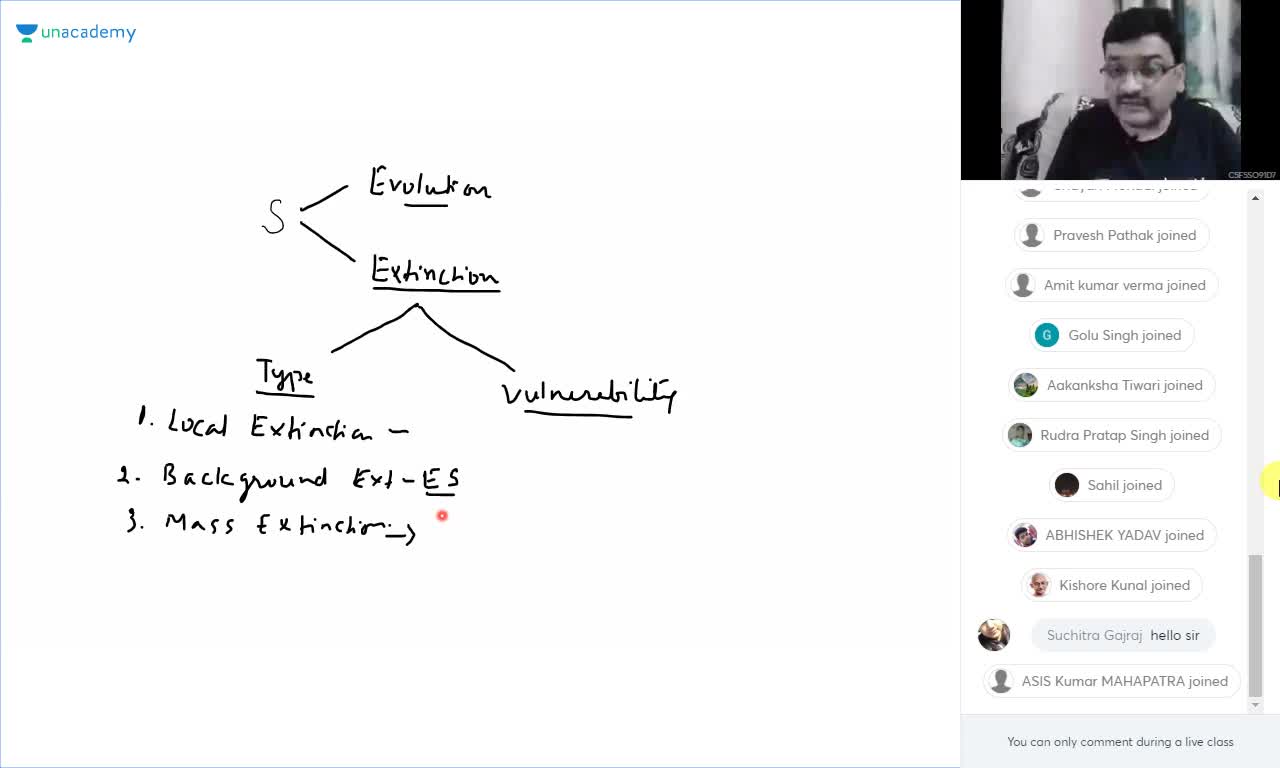 unacademy
S
Evolution
Extinction
Type
Vulnerability
1. Local Extinction –
2. Background Ext – ES
3. Mass Extinction. →
CSFSSO91D7
joined
Pravesh Pathak joined
Amit kumar verma joined
G Golu Singh joined
Aakanksha Tiwari joined
Rudra Pratap Singh joined
Sahil joined
ABHISHEK YADAV joined
Kishore Kunal joined
Suchitra Gajraj hello sir
ASIS Kumar MAHAPATRA joined
You can only comment during a live class